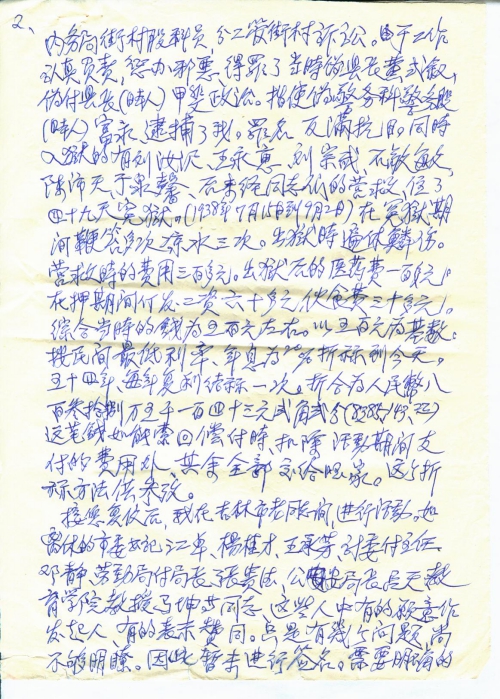 2、
内务局街村股科员,分工管街村诉讼。由于工作
认真负责,惩办邪恶、得罪了当時伪县长黄式敏,
伪付县长(日本人)甲斐政治。指使伪警务科警务股
(日本人)富永、逮捕了我。罪名 反满抗日。同時
入狱的有刘汝沢、王永惠、刘宗武、
营救、住了
四十九天冤狱。(1938年7月15日到9月2日)在冤狱期
间鞭笞多次凉水三次。出狱時遍体鳞伤。
营救時的费用三百多元。出狱后的医药费一百多元。
在押期间付出工资六十多元伙食费三十多元。
综合当時的钱为五百元左右。以五百元为基数:
按民间最低利率、年息为 折标到今天。
五十四年、每年复利结标一次。折合为人民幣八
百叁拾捌万五千一百四十三元弍角弍分(8385143.22)
这笔钱如能索回偿付時、扣除活動期间支
付的费用外、其余全部交给国家。这个折
标方法供参攷。
接您复信后,我在吉林市老同 间,进行活动。如
离休的市委书记江卓、杨桂才、王承芳 委付主任。
邓静、劳動局付局长张贵法、公安局长
育学院教授马坤 同志、这些人中有的願意作
发起人 有的表示赞同。只是有幾个问题尚
不够明瞭。因此暂未进行签名。需要明确的